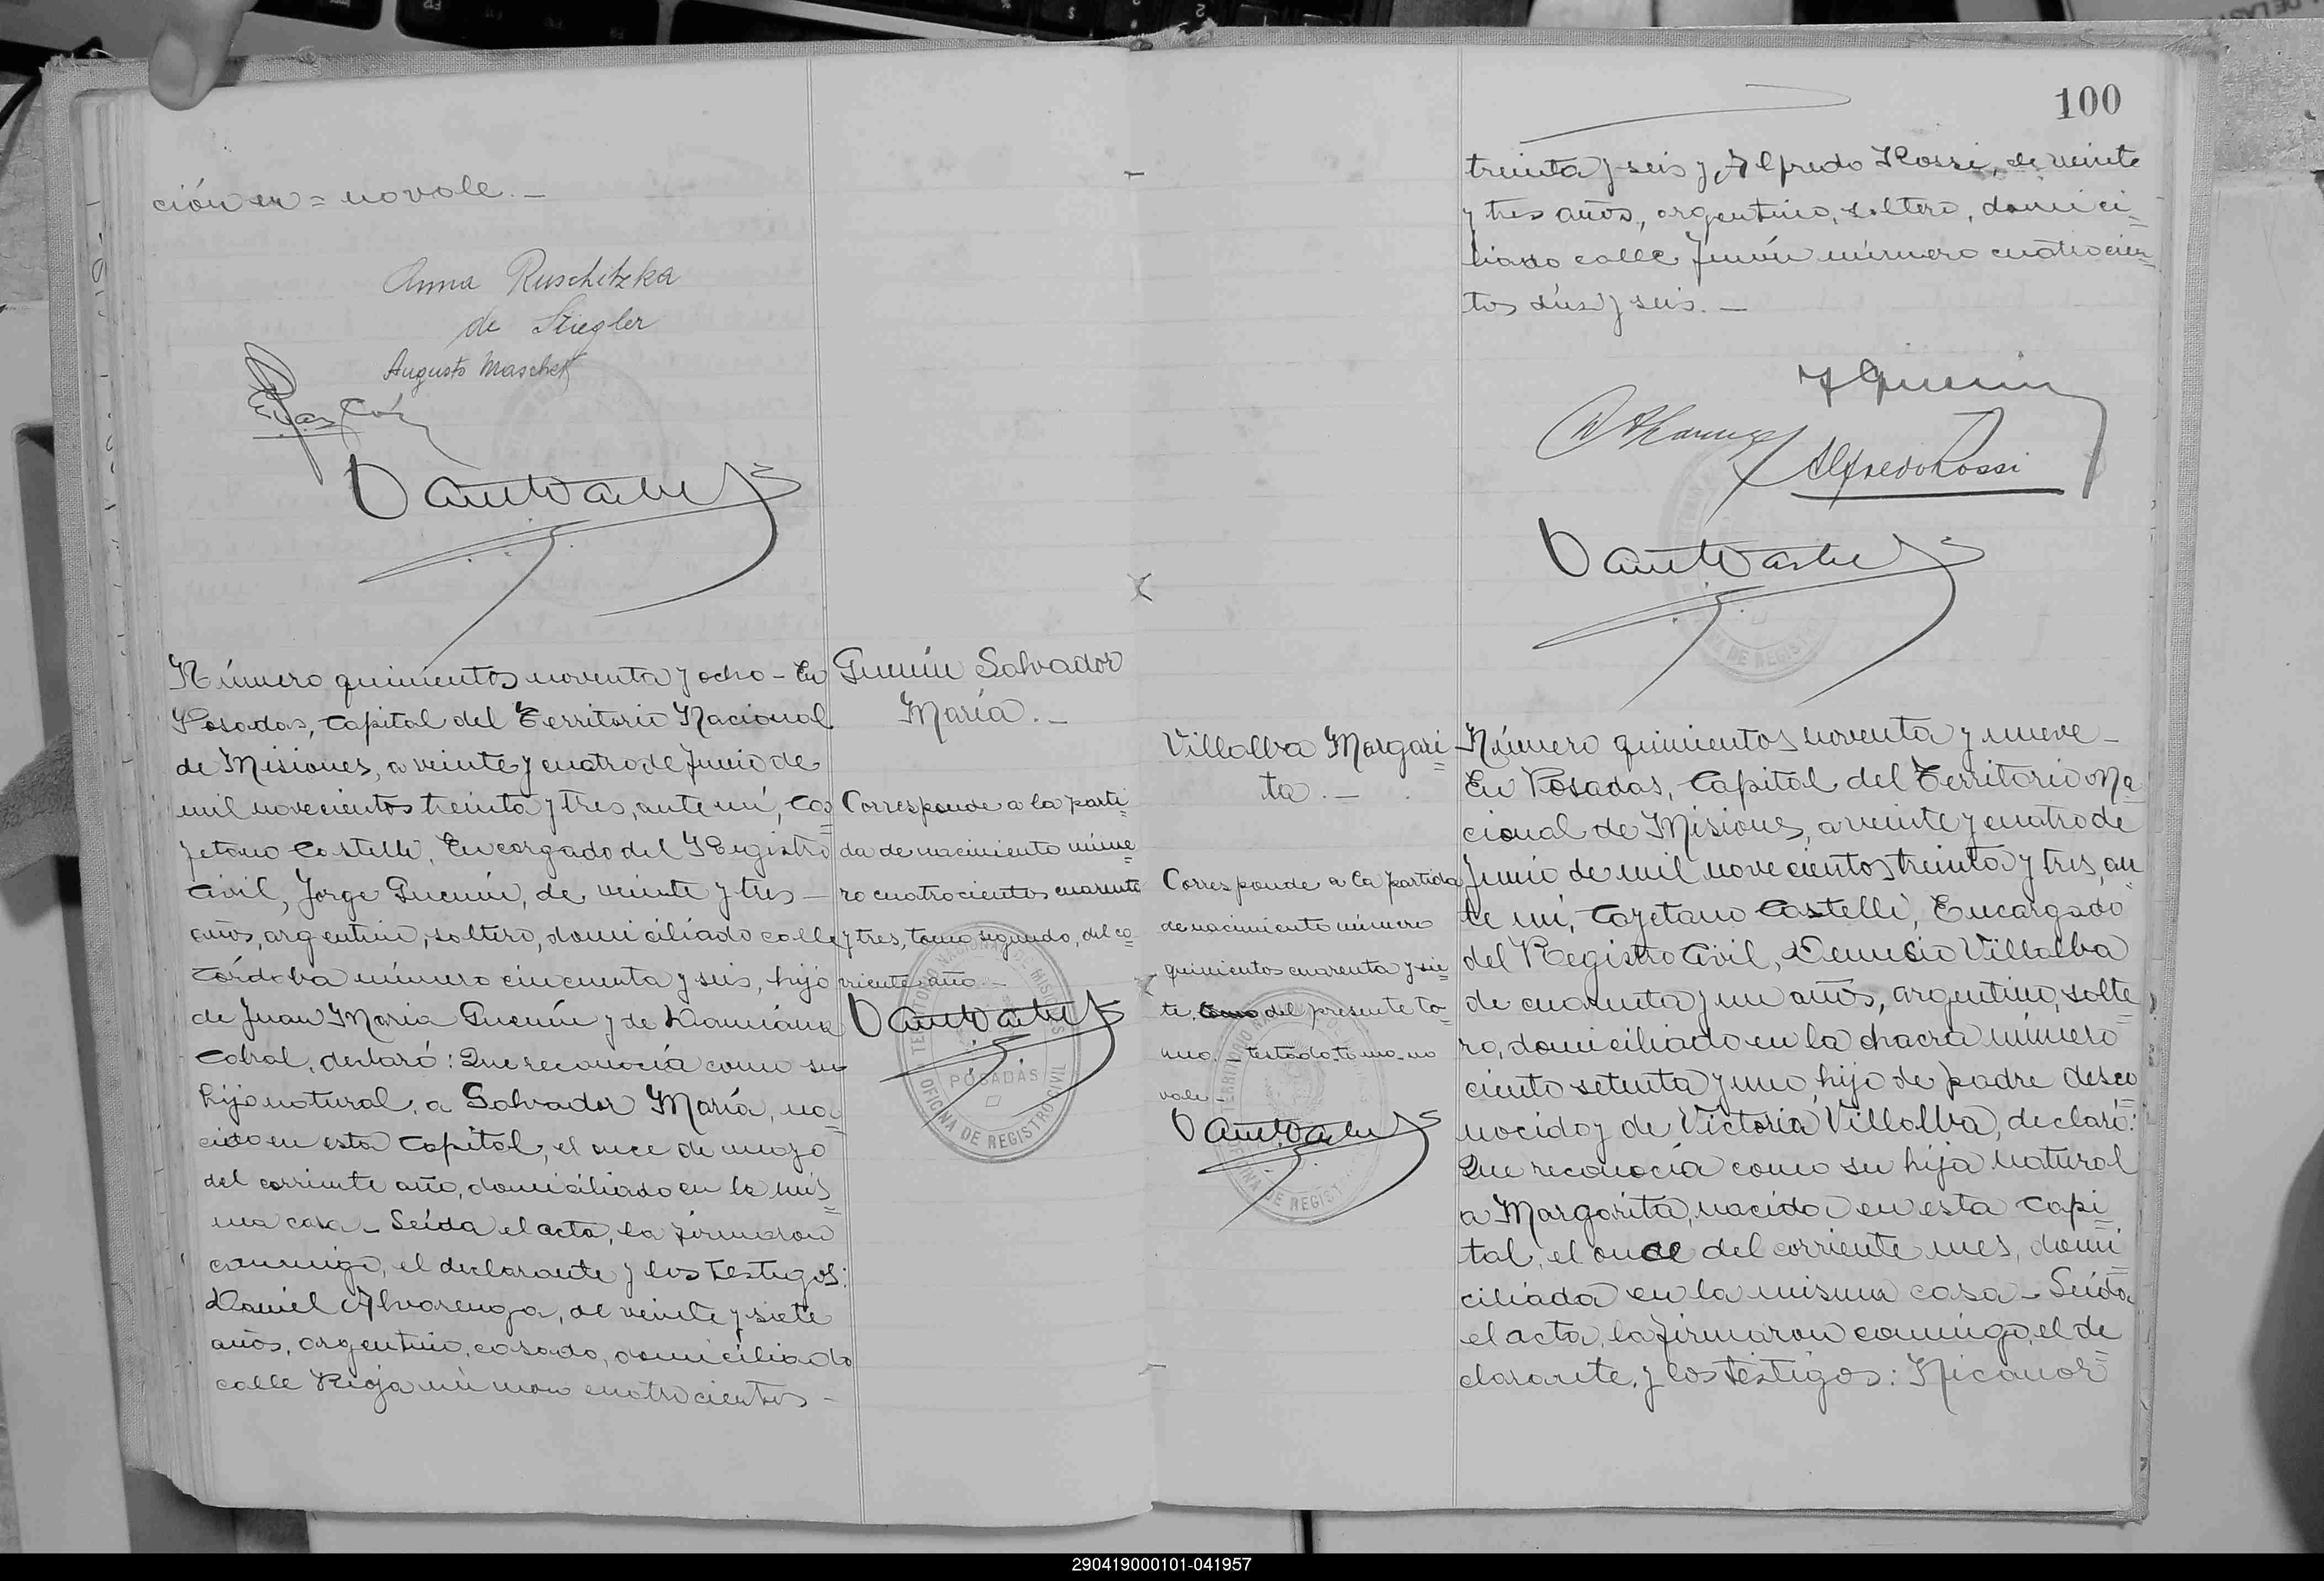 ción en = no vale. —
Anna Ruschitzka
de Stiegler
Augusto Maschek
Número quinientos noventa y ocho — En
Posadas, Capital del Territorio Nacional
de Misiones, a veinte y cuatro de Junio de
mil novecientos treinta y tres, ante mí, Ca=
yetano Castelli, Encargado del Registro
Civil, Jorge Guenín, de veinte y tres —
años, argentino, soltero, domiciliado calle
Córdoba número cincuenta y seis, hijo
de Juan María Guenín y de Damiana
Cabral, declaró: Que reconocía como su
hijo natural, a Salvador María, na=
cido en esta Capital, el once de mayo
del corriente año, domiciliado en la mis=
ma casa — Leída el acta, la firmaron
conmigo, el declarante y los testigos:
Daniel Alvarenga, de veinte y siete
años, argentino, casado, domiciliado
calle Rioja número cuatrocientos —
Guenín Salvador
María. —
Corresponde a la parti=
da de nacimiento núme=
ro cuatrocientos cuarenta
y tres, tomo segundo, del co=
rriente año. —
TERRITORIO NACIONAL DE MISIONES
POSADAS
OFICINA DE REGISTRO CIVIL
100
treinta y seis y Alfredo Rossi, de veinte
y tres años, argentino, soltero, domici=
liado calle Junín número cuatrocien=
tos diez y seis. —
J Guenin
Alfredo Rossi
Villalba Margari=
ta. —
Corresponde a la partida
de nacimiento número
quinientos cuarenta y sie=
te, tomo del presente to=
mo. — testado—tomo—no
vale —
Número quinientos noventa y nueve —
En Posadas, Capital del Territorio Na=
cional de Misiones, a veinte y cuatro de
Junio de mil novecientos treinta y tres, an=
te mí, Cayetano Castelli, Encargado
del Registro Civil, Demesio Villalba
de cuarenta y un años, argentino, solte=
ro, domiciliado en la chacra número
ciento setenta y uno, hijo de padre desco=
nocido y de Victoria Villalba, declaró:
Que reconocía como su hija natural
a Margarita, nacida en esta Capi=
tal, el once del corriente mes, domi=
ciliada en la misma casa — Leída
el acta, la firmaron conmigo, el de=
clarante, y los testigos: Nicanor
290419000101-041957